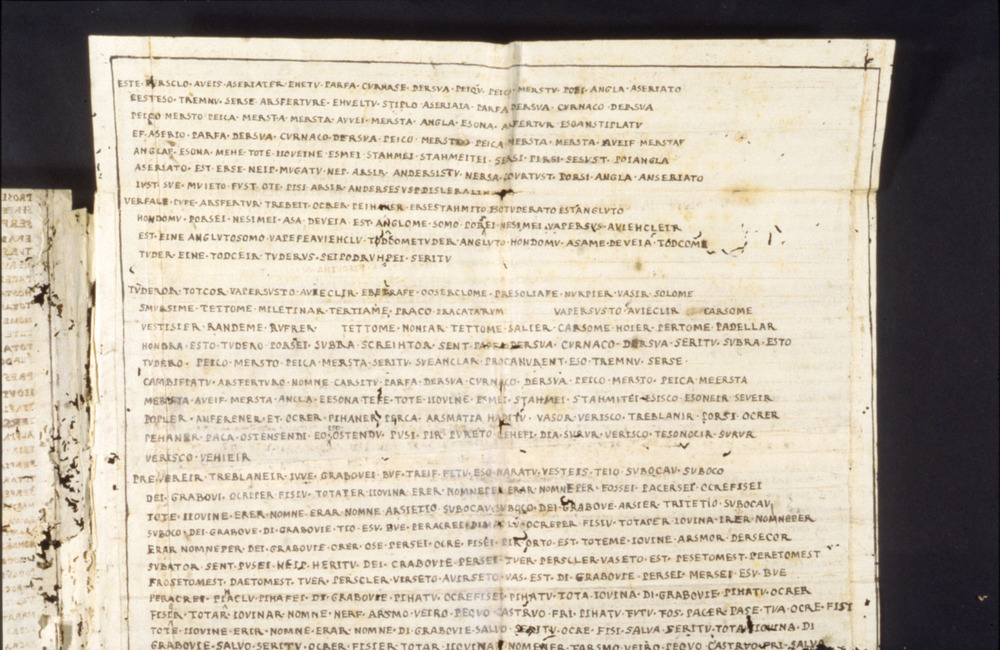 ESTE·PERSCLO·AVEIS·ASERIATER·ENETV·PARFA·CVRNASE·DERSVA·PEIQV·PEICA·MERSTV·POEI·ANGLA·ASERIATO
EESTESO·TREMNV·SERSE·ARSFERTVRE·EHVELTV·STIPLO·ASERIAIA·PARFA·DERSVA·CVRNACO·DERSVA
PEICO·MERSTO·PEICA·MERSTA·MERSTA·AVVEI·MERSTA·ANGLA·ESONA·ARFERTVR·ESOANSTIPLATV
EF·ASERIO·PARFA·DERSVA·CVRNACO·DERSVA·PEICO·MERSTO·PEICA·MERSTA·MERSTA·AVEIF·MERSTAF
ANGLAF·ESONA·MEHE·TOTE·IIOVEINE·ESMEI·STAHMEI·STAHMEITEI·SERSI·PIRSI·SESVST·POIANGLA
ASERIATO·EST·ERSE·NEIP·MVGATV·NEP·ARSIR·ANDERSISTV·NERSA·COVRTVST·PORSI·ANGLA·ANSERIATO
IVST·SVE·MVIETO·FVST·OTE·PISI·ARSIR·ANDERSESVSPDISLERALINSVST
VERFALE·PVPE·ARSFERTVR·TREBEIT·OCRER·PEIHANER·ERSESTAHMITO·ESOTVDERATO·ESTANGLVTO
HONDOMV·PORSEI·NESIMEI·ASA·DEVEIA·EST·ANGLOME·SOMO·PORSEI·NESIMEI·VAPERSVS·AVIEHCLEIR
EST·EINE·ANGLVTOSOMO·VAPEFEAVIEHCLV·TODCOMETVDER·ANGLVTO·HONDOMV·ASAME·DEVEIA·TODCOME
TVDER·EINE·TODCEIR·TVDERVS·SEIPODRVHPEI·SERITV
TVDEROR·TOTCOR·VAPERSVSTO·AVIECLIR·EBETRAFE·OOSERCLOME·PRESOLIAFE·NVRPIER·VASIR·SOLOME
SMVRSIME·TETTOME·MILETINAR·TERTIAME·PRACO·PRACATARVM VAPERSVSTO·AVIECLIR CARSOME
VESTISIER·RANDEME·RVFRER TETTOME·NONIAR·TETTOME·SALIER·CARSOME·HOIER·PERTOME·PADELLAR
HONDRA·ESTO·TVDERO·PORSEI·SVBRA·SCREIHTOR·SENT·PARFA·DERSVA·CVRNACO·DERSVA·SERITV·SVBRA·ESTO
TVDERO·PEICO·MERSTO·PEICA·MERSTA·SERITV·SVEANCLAR·PROCANVRENT·ESO·TREMNV·SERSE·
COMBIFIATV·ARSFERTVRO·NOMNE·CARSITV·PARFA·DERSVA·CVRNACO·DERSVA·PEICO·MERSTO·PEICA·MEERSTA
MERSTA·AVEIF·MERSTA·ANCLA·EESONA·TEFE·TOTE·IIOVINE·ESMEI·STAHMEI·STAHMITEI·ESISCO·ESONEIR·SEVEIR
POPLER·ANFERENER·ET·OCRER·PIHANER·PERCA·ARSMATIA·HABITV·VASOR·VERISCO·TREBLANIR·PORSI·OCRER
PEHANER·PACA·OSTENSENDI·EO·OSTENDV·PVSI·PIR·PVRETO·CEHEFI·DIA·SVRVR·VERISCO·TESONOCIR·SVRVR
VERISCO·VEHIEIR
PRE·VEREIR·TREBLANEIR·IVVE·GRABOVEI·BVF·TREIF·FETV·ESO·NARATV·VESTEIS·TEIO·SVBOCAV·SVBOCO
DEI·GRABOVI·OCRIPER·FISIV·TOTAPER·IIOVINA·ERER·NOMNEPER·ERAR·NOMNEPER·FOSSEI·PACERSEI·OCREFISEI
TOTE·IIOVINE·ERER·NOMNE·ERAR·NOMNE·ARSIETIO·SVBOCAV·SVBOCO·DEI·GRABOVE·ARSIER·TRITETIO·SVBOCAV
SVBOCO·DEI·GRABOVE·DI·GRABOVIE·TIO·ESV·BVE·PERACREI·PIHACLV·OCREPER·FISIV·TOTAPER·IOVINA·IRER·NOMNEPER
ERAR·NOMNEPER·DEI·GRABOVIE·ORER·OSE·PERSEI·OCRE·FISEI·PIR·ORTO·EST·TOTEME·IOVINE·ARSMOR·DERSECOR
SVBATOR·SENT·PVSEI·NEIP·HERITV·DEI·CRABOVIE·PERSEI·TVER·PERSCLER·VASETO·EST·PESETOMEST·PERETOMEST
FROSETOMEST·DAETOMEST·TVER·PERSCLER·VIRSETO·AVIRSETO·VAS·EST·DI·GRABOVIE·PERSEI·MERSEI·ESV·BVE
PERACREI·PIHACLV·PIHAFEI·DI·GRABOVIE·PIHATV·OCREFISEI·PIHATV·TOTA·IOVINA·DI·GRABOVIE·PIHATV·OCRER
FISIER·TOTAR·IOVINAR·NOMNE·NERF·ARSMO·VEIRO·PEQVO·CASTRVO·FRI·PIHATV·FVTV·FOS·PACER·PASE·TVA·OCRE·FISI
TOTE·IIOVINE·ERIR·NOMNE·ERAR·NOMNE·DI·GRABOVIE·SALVO·SERITV·OCRE·FISI·SALVA·SERITV·TOTA·IIOVINA·DI
GRABOVIE·SALVO·SERITV·OCRER·FISIER·TOTAR·IIOVINAR·NOMENER·FARSMO·VEIRO·PEQVO·CASTRVO·FRI·SALVA